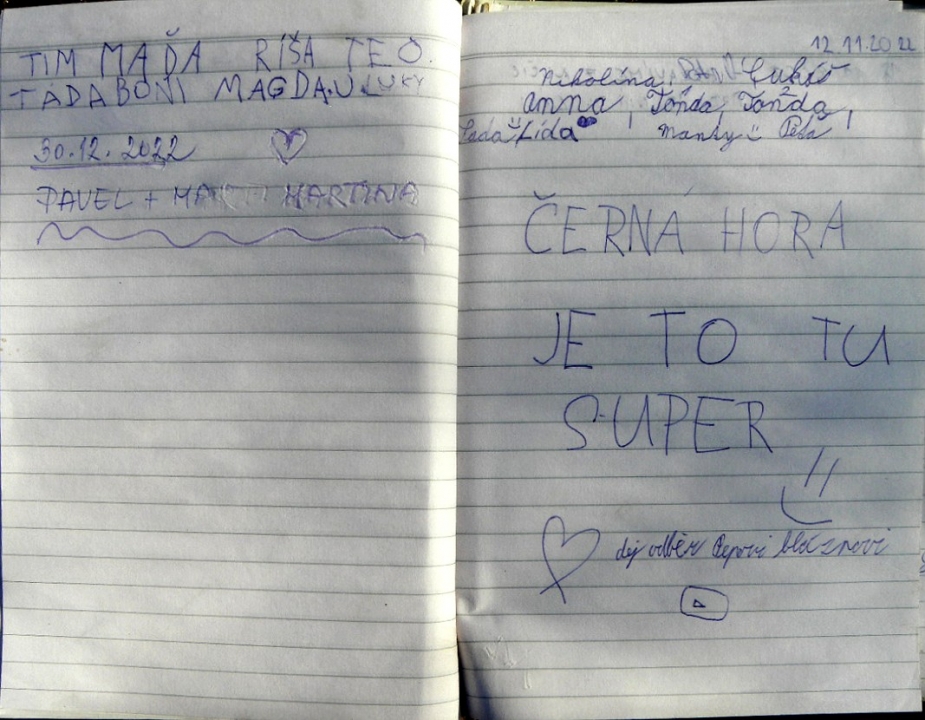 TIM MAĎA RÍŠA TEO.
TADA BONI MAGDA.N LUKY
30.12.2022
PAVEL + MARTI MARTINA
12 11.20 22
Nikolína, Lukáš
Anna Tonda Tonda,
Lída Manky Péťa
ČERNÁ HORA
JE TO TU
SUPER
dej odběr Pepovi bláznovi